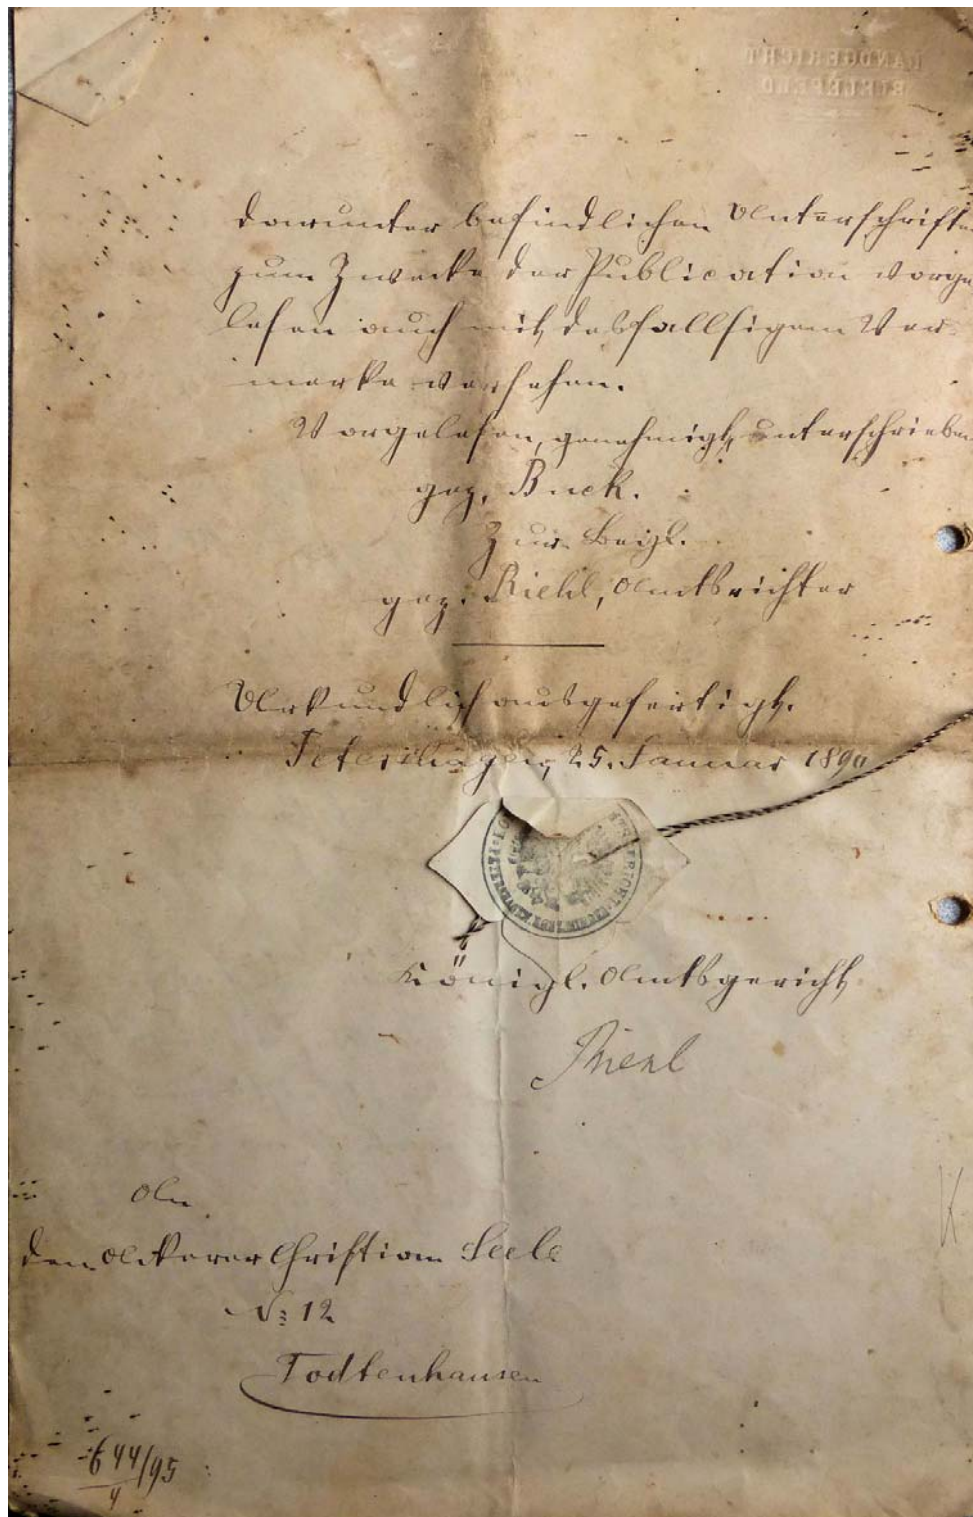 LANDGERICHT
BIELEFELD
darunter befindlichen Unterschriften
zum Zwecke der Publication vorge
lesen auch mit desfallsigem Ver-
merke versehen.
Vorgelesen, genehmigt, unterschrieben
gez. Buck.
Zur Beigl.
gez. Riehl, Amtsrichter
Urkundlich ausgefertigt.
Petershagen, 25. Januar 1890
Königl. Amtsgericht
Riehl
An
den Ackerer Christian Seele
No 12
Todtenhausen
644/95
4
K